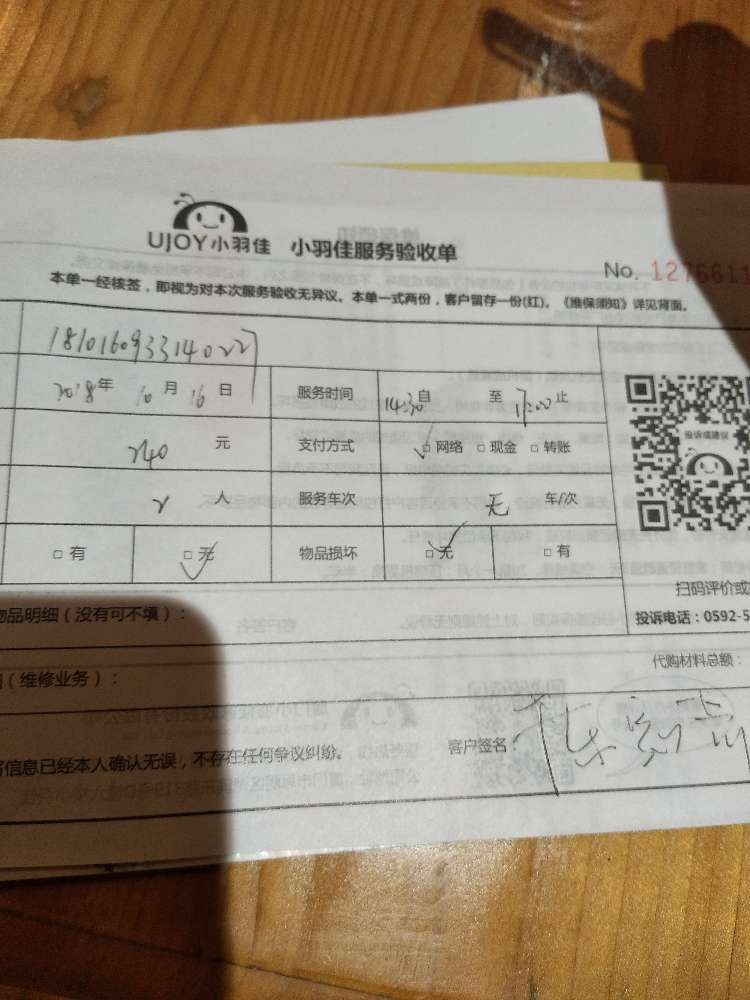 UJOY小羽佳 小羽佳服务验收单
No. 1276611
本单一经核签，即视为对本次服务验收无异议。本单一式两份，客户留存一份(红)。《维保须知》详见背面。
1810160933140227
2018年 10月 16日 服务时间 14:30自 至 17:00止
240 元 支付方式 □网络 □现金 □转账
投诉或建议
2 人 服务车次 无 车/次
□有 □无 物品损坏 □无 □有
扫码评价或
物品明细（没有可不填）： 投诉电话：0592-5
代购材料总额：
（维修业务）：
信息已经本人确认无误，不存在任何争议纠纷。 客户签名：